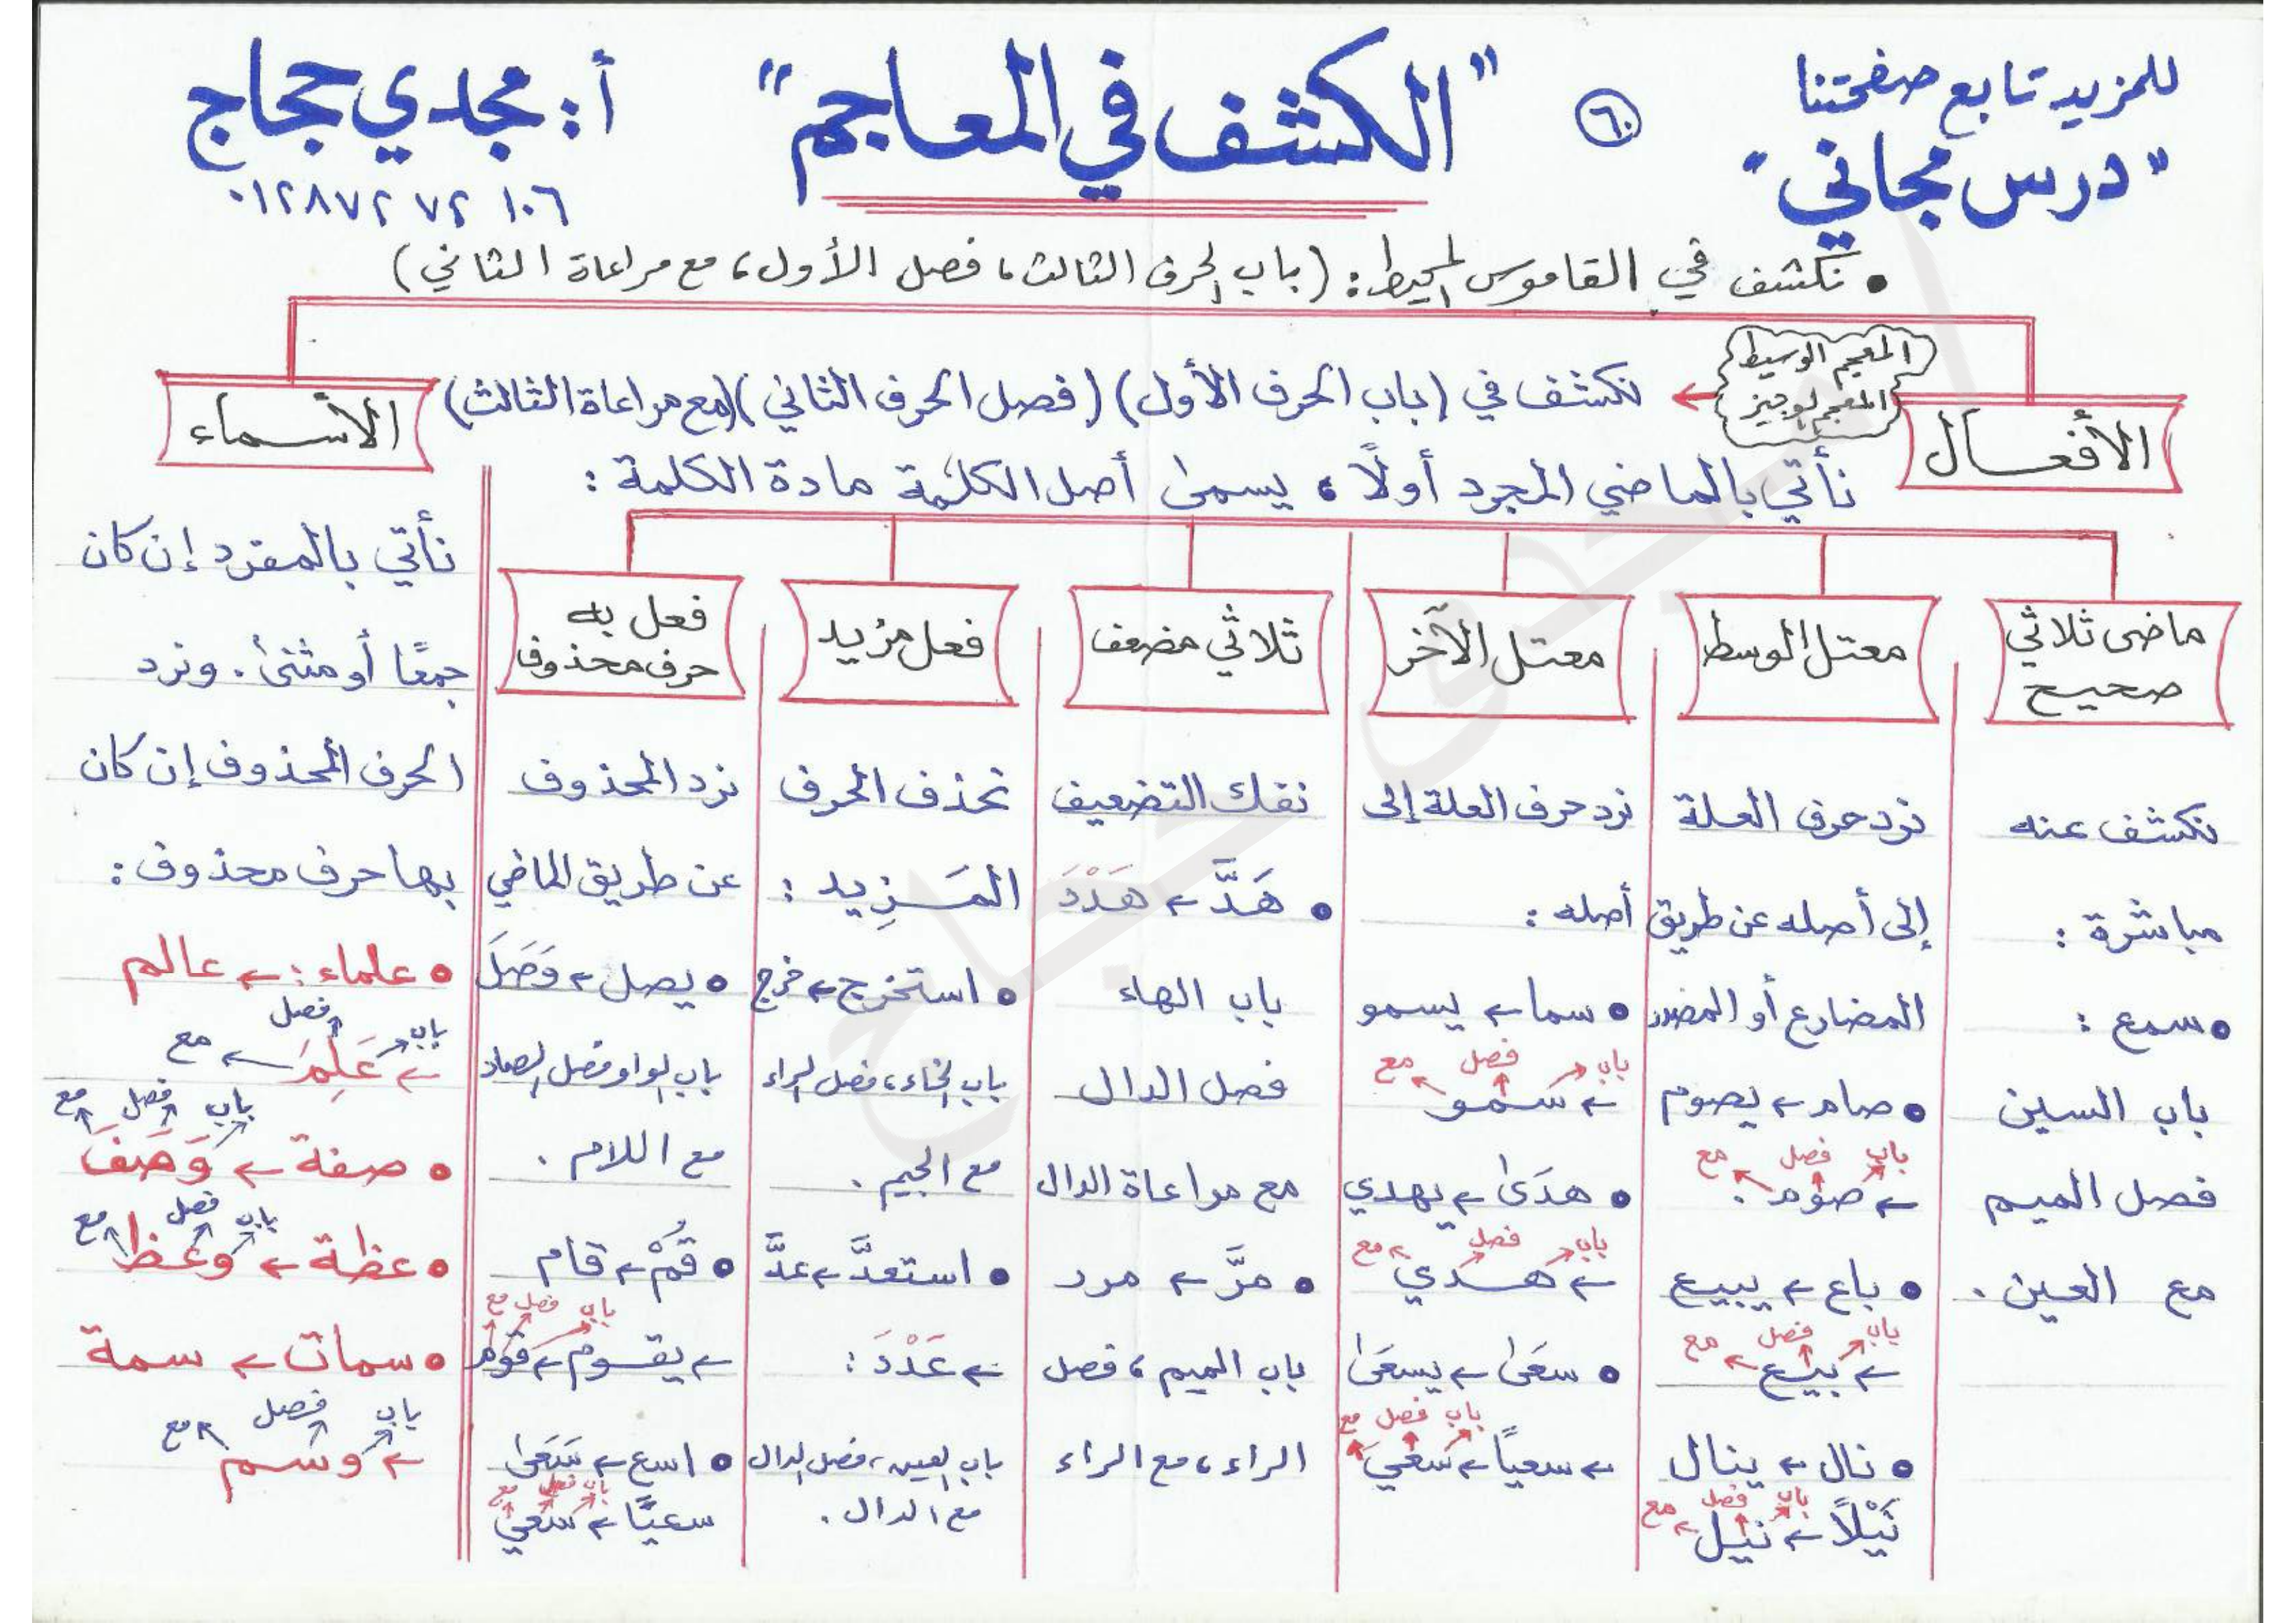 للمزيد تابع صفحتنا
"درس مجاني"
٦٠
"الكشف في المعاجم"
أ: مجدي حجاج
٠١٢٨٧٢ ٧٢ ١٠٦
• نكشف في القاموس المحيط: (باب الحرف الثالث، فصل الأول، مع مراعاة الثاني)
المعجم الوسيط
المعجم الوجيز
← نكشف في (باب الحرف الأول) (فصل الحرف الثاني) (مع مراعاة الثالث)
الأفعال
نأتي بالماضي المجرد أولًا، يسمى أصل الكلمة مادة الكلمة:
ماضى ثلاثي
صحيح
نكشف عنه
مباشرة:
• سمع:
باب السين
فصل الميم
مع العين.
معتل الوسط
نرد حرف العلة
إلى أصله عن طريق
المضارع أو المصدر
• صام ← يصوم
باب فصل مع
← صوم.
• باع ← يبيع
باب فصل مع
← بيع
• نال ← ينال
باب فصل مع
نَيْلًا ← نيل
معتل الآخر
نرد حرف العلة إلى
أصله:
• سما ← يسمو
باب فصل مع
← سمو
• هدَى ← يهدي
باب فصل مع
← هدي
• سعَى ← يسعَى
باب فصل مع
← سعيًا ← سعي
ثلاثي مضعف
نفك التضعيف
• هَدَّ ← هَدْدَ
باب الهاء
فصل الدال
مع مراعاة الدال
• مرَّ ← مرر
باب الميم، فصل
الراء، مع الراء
فعل مزيد
نحذف الحرف
المَزِيد:
• استخرج ← خرج
باب الخاء، فصل الراء
مع الجيم.
• استعدَّ ← عدَّ
← عَدْدَ:
باب العين، فصل الدال
مع الدال.
فعل به
حرف محذوف
نرد المحذوف
عن طريق الماضي
• يصل ← وَصَلَ
باب الواو فصل الصاد
مع اللام.
• قُمْ ← قام
باب فصل مع
← يقوم ← قوم
• اسع ← سَعَى
باب فصل مع
سعيًا ← سعي
الأسماء
نأتي بالمفرد إن كان
جمعًا أو مثنى. ونرد
الحرف المحذوف إن كان
بها حرف محذوف:
• علماء: ← عالم
باب فصل مع
← عَلِمَ
باب فصل مع
• صفة ← وَصَفَ
باب فصل مع
• عظة ← وعظ
• سمات ← سمة
باب فصل مع
← وسم
مجدى حجاج